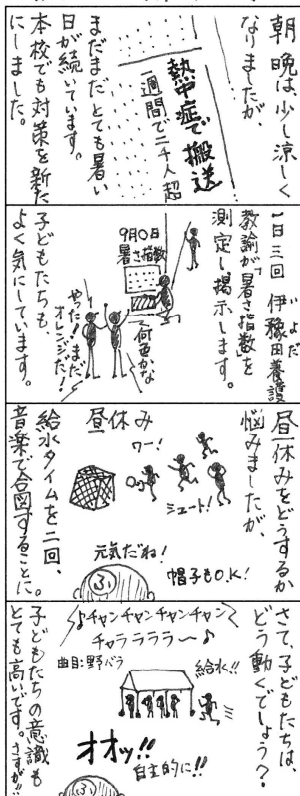 朝晩は、少し涼しく
なりましたが、
熱中症で搬送
一週間で二千人超
まだまだとても暑い
日が続いています。
本校でも対策を新た
にしました。
一日三回 伊豫田養護
いよだ
教諭が「暑さ指数」を
測定し掲示します。
9月〇日
暑さ指数
何色かな
やった!まだ
オレンジだ!
子どもたちも、
よく気にしています。
昼休みをどうするか
悩みましたが、
昼休み
ワー!
シュート!
元気だね!
帽子もO.K!
ふ
給水タイムを二回、
音楽で合図することに。
さて、子どもたちは、
どう動くでしょう?
♪チャンチャンチャンチャン
チャララララ〜♪
曲目:野バラ
給水!!
オオッ!!
自主的に!!
ふ
子どもたちの意識も
とても高いです。さすが!!